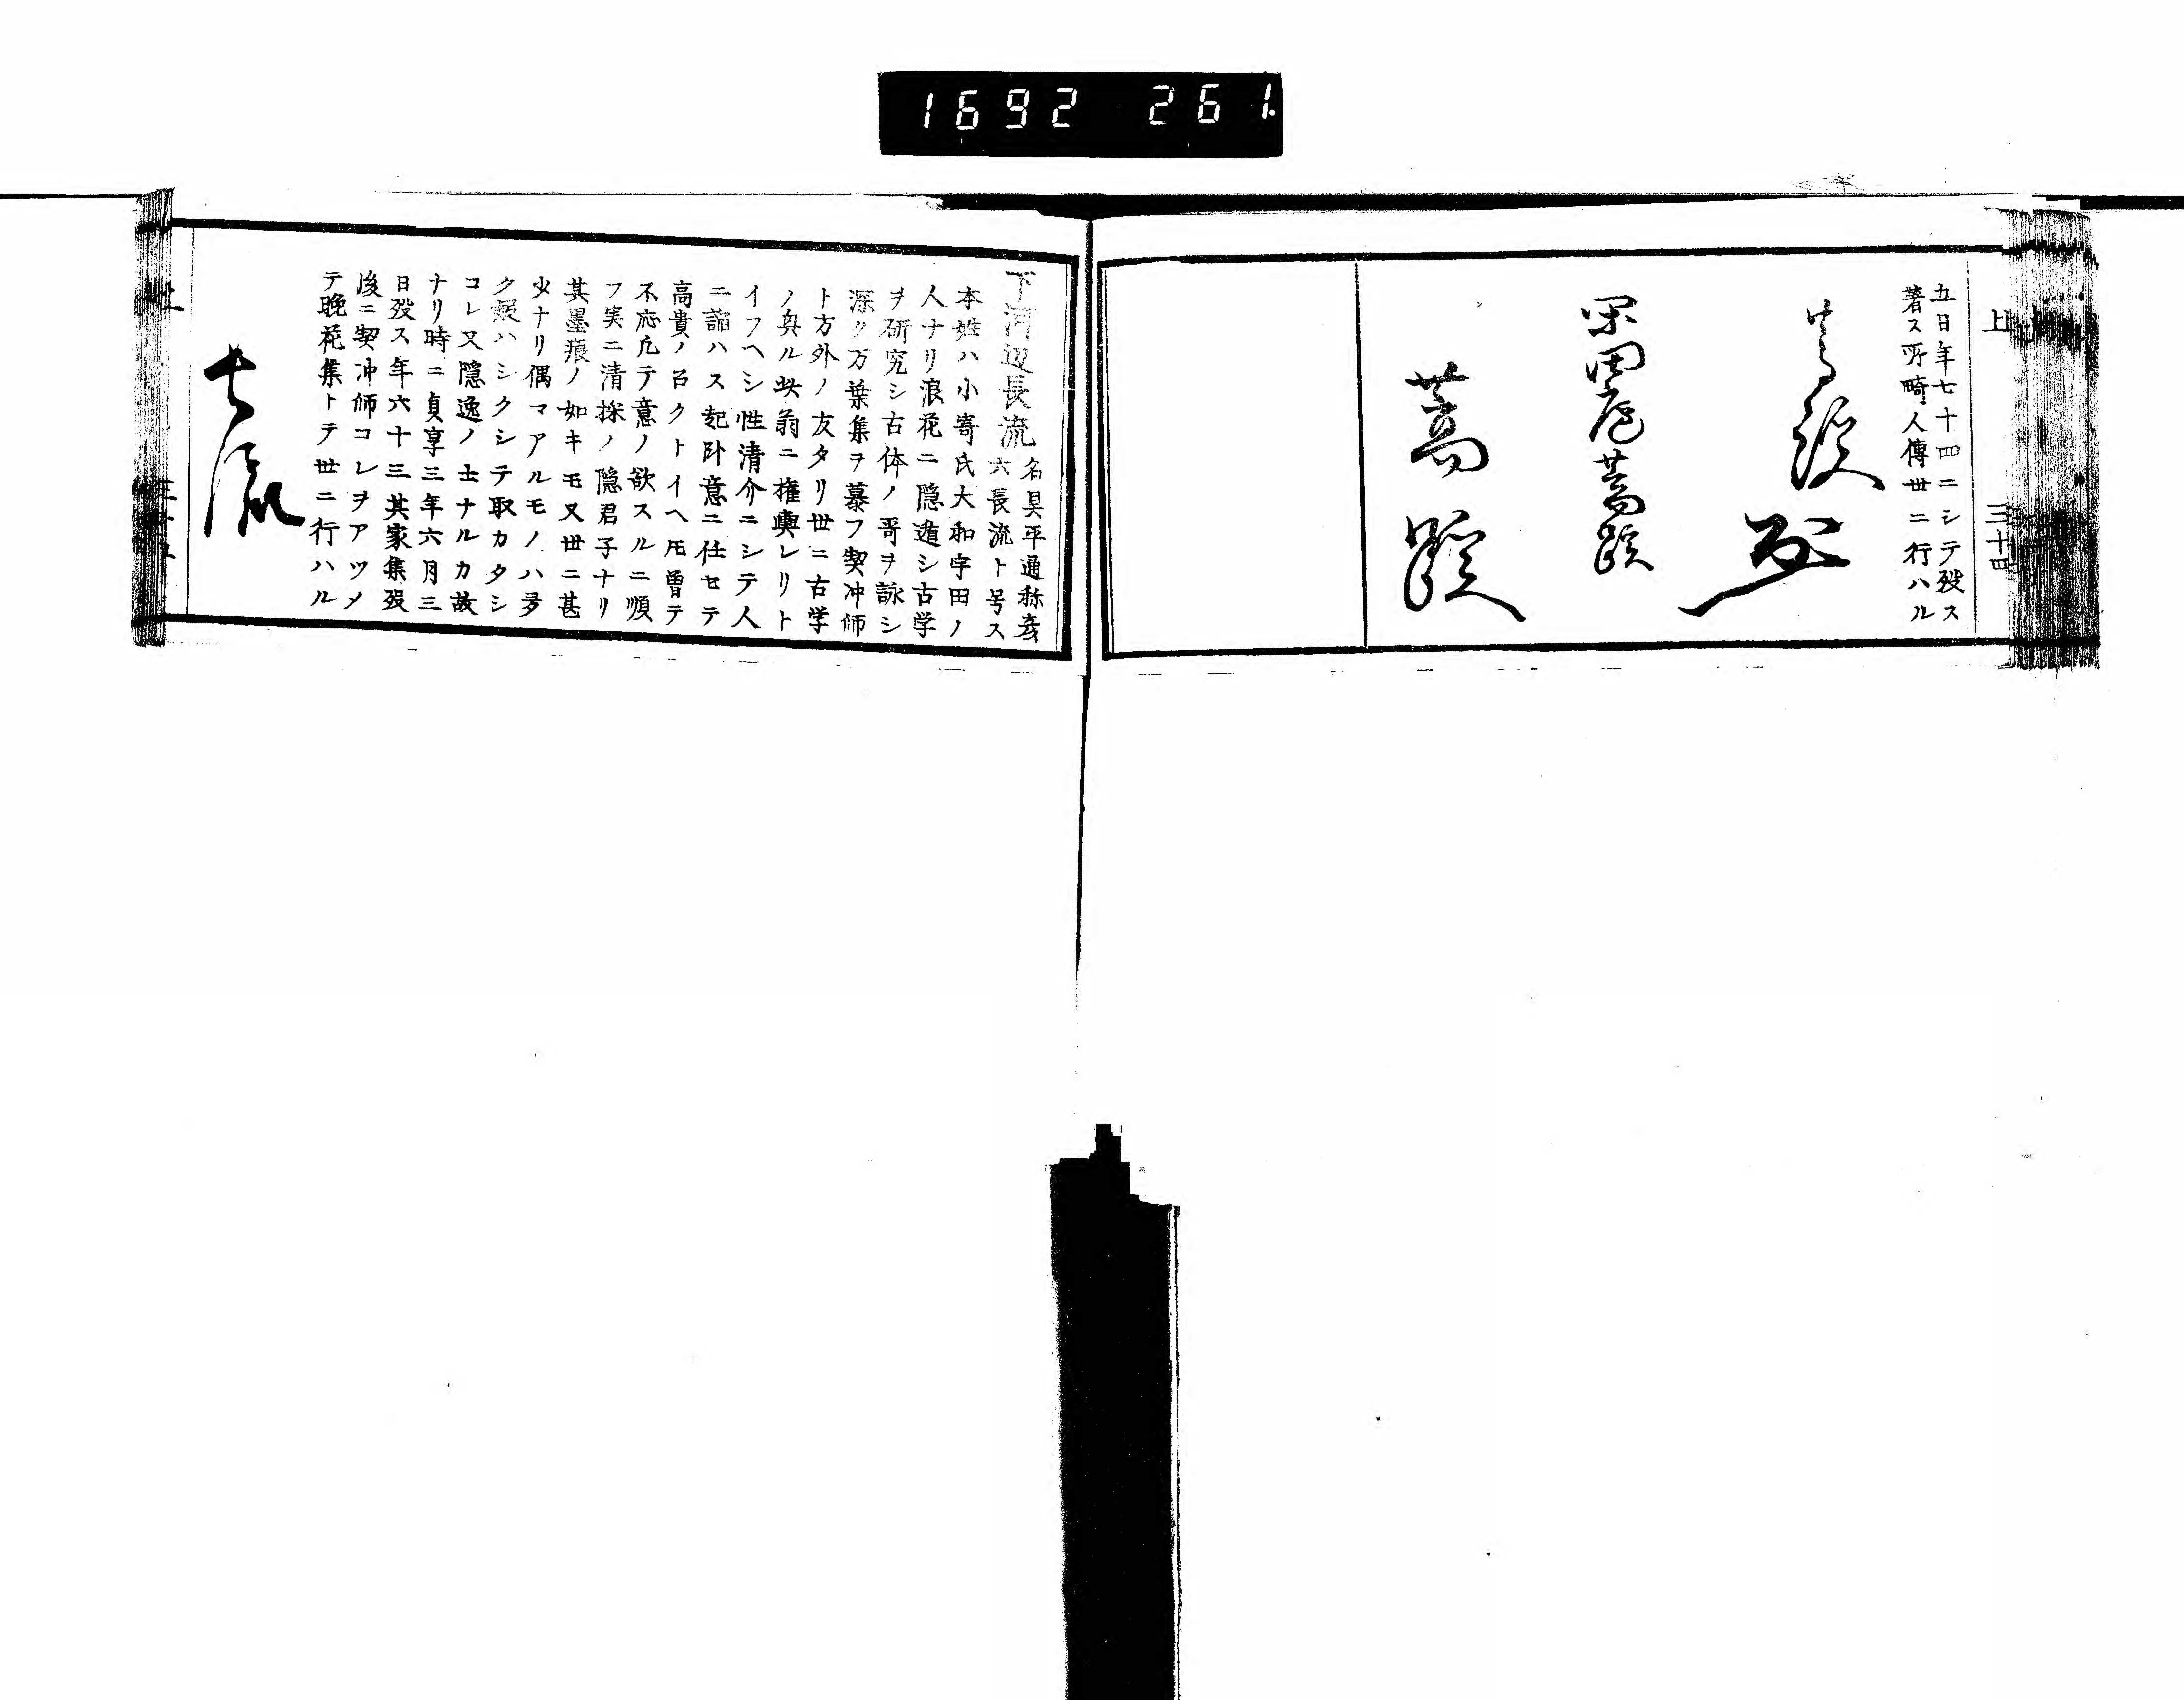 1692 261
上 三十四
五日年七十四ニシテ歿ス
著ス所畸人傳世ニ行ハル
蒿蹊
閑田廬蒿蹊
蒿蹊
下河辺長流 名具平通称彦
六長流ト号ス
本姓ハ小寄氏大和宇田ノ
人ナリ浪花ニ隠遁シ古学
ヲ研究シ古体ノ哥ヲ詠シ
深ク万葉集ヲ慕フ契冲師
ト方外ノ友タリ世ニ古学
ノ奥ル此翁ニ権輿レリト
イフヘシ性清介ニシテ人
ニ諂ハス起卧意ニ任セテ
高貴ノ召クトイヘ𪜈曽テ
不応凢テ意ノ欲スルニ順
フ実ニ清操ノ隠君子ナリ
其墨痕ノ如キモ又世ニ甚
少ナリ偶マアルモノハ多
クハシクシテ取カタシ
コレ又隠逸ノ士ナルカ故
ナリ時ニ貞享三年六月三
日歿ス年六十三其家集歿
後ニ契冲師コレヲアツメ
テ晩花集トテ世ニ行ハル
長流
上